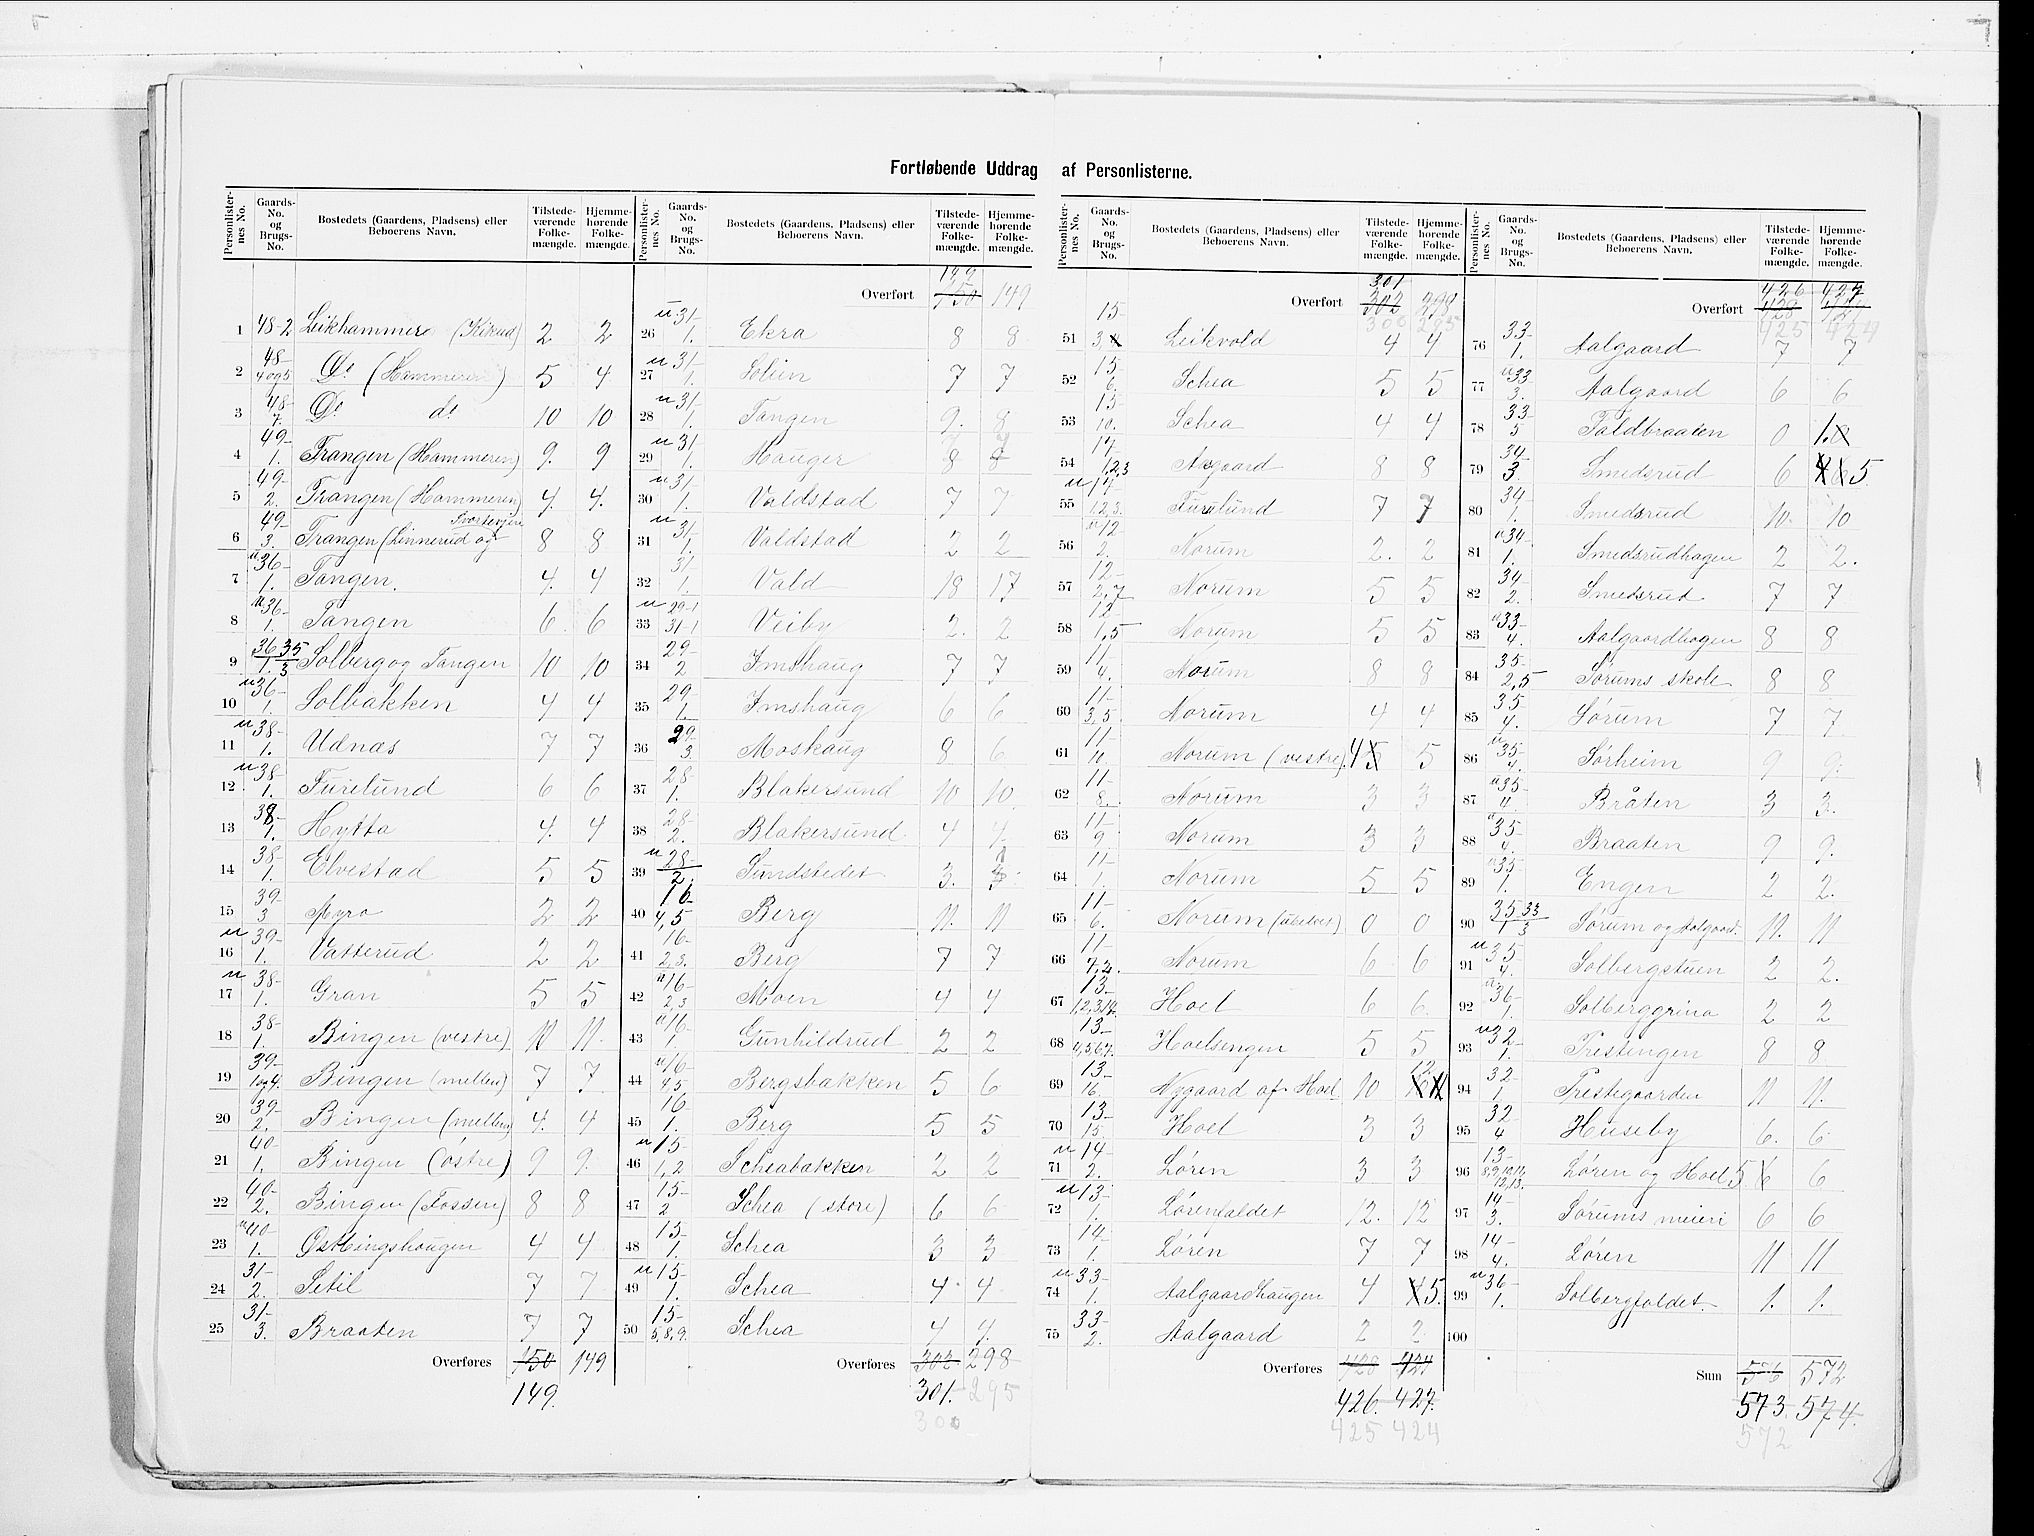 Fortløbende Uddrag af Personlisterne.
Personlisternes No. Gaards-No. og Brugs-No. Bostedets (Gaardens, Pladsens) eller Beboerens Navn. Tilstedeværende Folkemængde. Hjemmehørende Folkemængde.
1 48-2 Leikhammer (Kirud) 2 2
2 48-4og5 Do (Hammeren) 5 4
3 48-7. Do do 10 10
4 49-1. Trangen (Hammeren) 9. 9
5 49-2. Trangen (Hammeren) 4. 4.
6 49-3. Trangen (Linnerud og 8 8
7 u36-1. Tangen. 4. 4
8 u36-1. Tangen 6 6
9 36/1. 35/3 Solberg og Tangen 10 10
10 u36-1. Solbakken 4 4
11 u38-1. Udnæs 7 7
12 u38-1. Furulund 6 6
13 38-1. Hytta 4. 4
14 38-1. Elvestad 5 5
15 39-3 Myra 2 2
16 u39-1. Vatterud 2 2
17 u38-1. Gran 5 5
18 38-1. Bingen (vestre) 11 11.
19 39-1og4. Bingen (mellem) 7 7.
20 39-2. Bingen (mellem) 4. 4
21 40-1. Bingen (østre) 9 9.
22 40-2. Bingen (Fossen) 8 8
23 u40-1. Østbingshaugen 4 4
24 31-2. Setil 7 7
25 31-3. Braaten 7 7
Overføres 150 149
149.
Personlisternes No. Gaards-No. og Brugs-No. Bostedets (Gaardens, Pladsens) eller Beboerens Navn. Tilstedeværende Folkemængde. Hjemmehørende Folkemængde.
149
Overført 150 149
26 u31-1. Ekra 8 8
27 u31-1. Lolien 7 7
28 u31-1. Tangen 9. 8
29 u31-1. Hauger 8 8
30 u31-1. Valdstad 7 7
31 u31-1. Valdstad 2 2
32 31-1. Vald 18 17
33 u29-1 31-1 Veiby 2. 2
34 29-2 Imshaug 7 7
35 29-1. Imshaug 6 6
36 29-3. Moskaug 8 6
37 28-1. Blakersund 10 10.
38 28-2. Blakersund 4 4.
39 u28-2. Sundstedet 3. 3
40 16-4,5 Berg 11. 11
41 16-2,3. Berg 7 7
42 u16-2,3 Moen 4 4
43 u16-1. Gunhildrud 2 2
44 u16-4,5 Bergsbakken 5 6
45 16-1. Berg 5 5
46 u15-1,2 Scheabakken 2 2
47 15-2 Schea (store) 6 6
48 15-1. Schea 3 3
49 u15-1. Schea 4 4
50 15-5,8,9. Schea 4 4.
Overføres 302 298
301. 295
300
Personlisternes No. Gaards-No. og Brugs-No. Bostedets (Gaardens, Pladsens) eller Beboerens Navn. Tilstedeværende Folkemængde. Hjemmehørende Folkemængde.
301
Overført 302 298
300 295
51 15-3 Leikvold 4 4
52 15-6. Schea 5 5
53 15-10. Schea 4 4
54 14-1,2,3 Asgaard 8 8
55 u14-1,2,3. Furulund 7 7
56 u12-2. Norum 2. 2
57 12-2,7 Norum 5 5
58 12-1,5 Norum 5 5
59 11-4. Norum 8 8
60 11-3,5. Norum 4 4
61 11- Norum (vestre). 4 5 5
62 11-8. Norum 3 3
63 11-9. Norum 3 3
64 11-1. Norum 5 5
65 11-6. Norum (ubeboet) 0 0
66 11-7,2. Norum 6 6
67 13-1,2,3,14. Hoel 6 6
68 13-4,5,6,7. Hoelsengen 5 5
69 13-16. Nygaard af Hoel 10 12. 11
70 13-15. Hoel 3 3
71 u14-2. Løren 3 3
72 u13-1. Lørenfaldet 12. 12
73 14-1. Løren 7 7
74 u33-1. Aalgaardhaugen 4 4 5.
75 33-2. Aalgaard 2 2
Overføres 428 424
426. 427.
425 424
Personlisternes No. Gaards-No. og Brugs-No. Bostedets (Gaardens, Pladsens) eller Beboerens Navn. Tilstedeværende Folkemængde. Hjemmehørende Folkemængde.
426 427
Overført 428 424
425 424
76 33-1. Aalgaard 7 7
77 u33-3. Aalgaard 6 6
78 33-5 Faldbraaten 0 1.
79 34-3. Smedsrud 6 4 6 5.
80 34-1. Smedsrud 10. 10
81 u34-1. Smedsrudhagen 2 2.
82 34-2. Smedsrud 7 7
83 u33-4. Aalgaardhagen 8 8
84 35-2,5 Sørums skole 8 8
85 35-4. Sørum 7 7.
86 u35-4. Sørheim 9 9.
87 u35-4. Bråten 3 3.
88 u35-4. Braaten 9 9.
89 u35-1. Engen 2 2.
90 35/1 33/3 Sørum og Aalgaard. 11. 11
91 u35-4. Solbergstuen 2 2.
92 u36-1. Solberggrina 2 2
93 u32-1. Prestengen 8 8
94 32-1 Prestegaarden 11 11.
95 32-4 Huseby 6. 6
96 13-8,9,10,11, 12,13. Løren og Hoel 5 6 6
97 14-3. Sørums meieri 6 6
98 14-4. Løren 11 11
99 u36-1. Solbergfaldet. 1. 1.
100
Sum 576 572
573. 574.
572